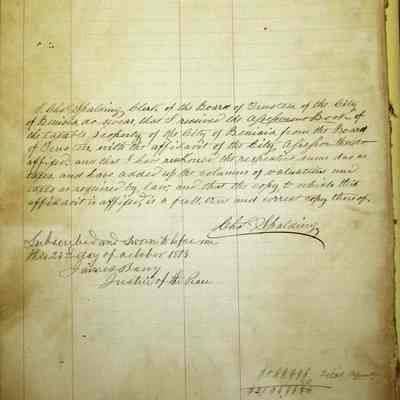 I Chas Spalding Clerk of the Board of Trustees of the City
of Benicia do swear, that I received the Assessment Book of
the taxable property of the City of Benicia from the Board
of Trustees with the affidavit of the City Assessor thereto
affixed and that I have the respective sums due as
taxes and have added up the columns of valuations and
taxes as required by law, and that the copy to which this
affidavit is affixed is a full, true and correct copy thereof.
Chas Spalding
Subscribed and Sworn to before me
this day of October 1873
James Barry
Justice of the Peace
Total